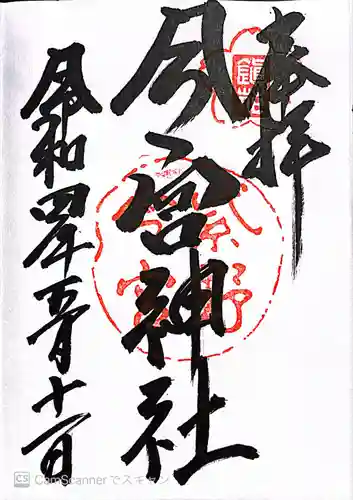 奉拝
今宮神社
令和四年五月十一日
紫野
今宮
CS CamScannerでスキャン